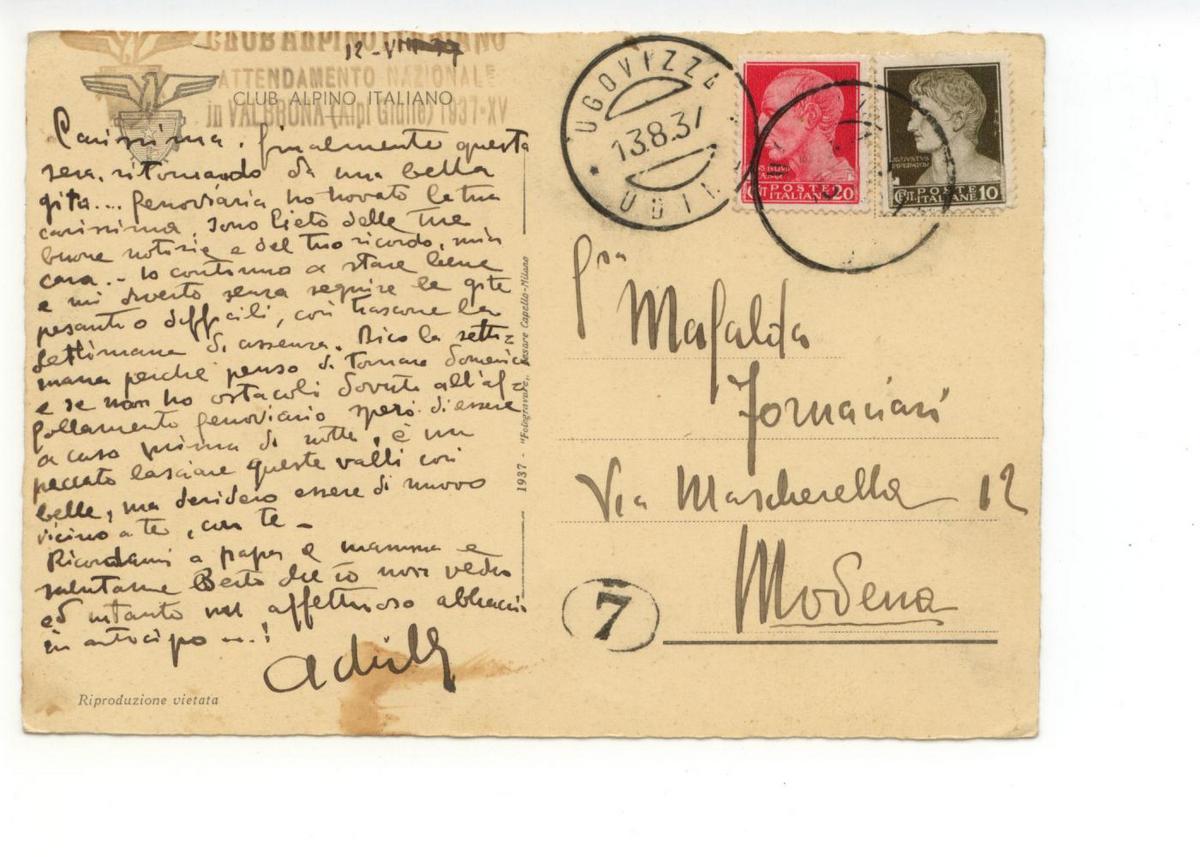 CLUB ALPINO ITALIANO
12-VIII-37
ATTENDAMENTO NAZIONALE
CLUB ALPINO ITALIANO
in VALBRUNA (Alpi Giulie) 1937-XV
Carissima, finalmente questa
sera, ritornando da una bella
gita... ferroviaria ho trovato la tua
carissima. Sono lieto delle tue
buone notizie e del tuo ricordo, mia
cara.- Io continuo a stare bene
e mi diverto senza seguire le gite
pesanti o difficili, così trascorre la
settimana di assenza. Dico la setti=
mana perché penso di tornare domenica
e se non ho ostacoli dovuti all'af=
follamento ferroviario spero di essere
a casa prima di notte, è un
peccato lasciare queste valli così
belle, ma desidero essere di nuovo
vicino a te, con te -
Ricordami a papà e mamma e
salutame Berto che io non vedrò
ed intanto un affettuoso abbraccio
in anticipo
Achille
Riproduzione vietata
1937 - "Fotogravure" Cesare Capello-Milano
UGOVIZZA
13.8.37
UDINE
POSTE ITALIANE
CENT. 20
POSTE ITALIANE
CENT. 10
Mafalda
Fornaciari
Via Mascherella 12
Modena
7